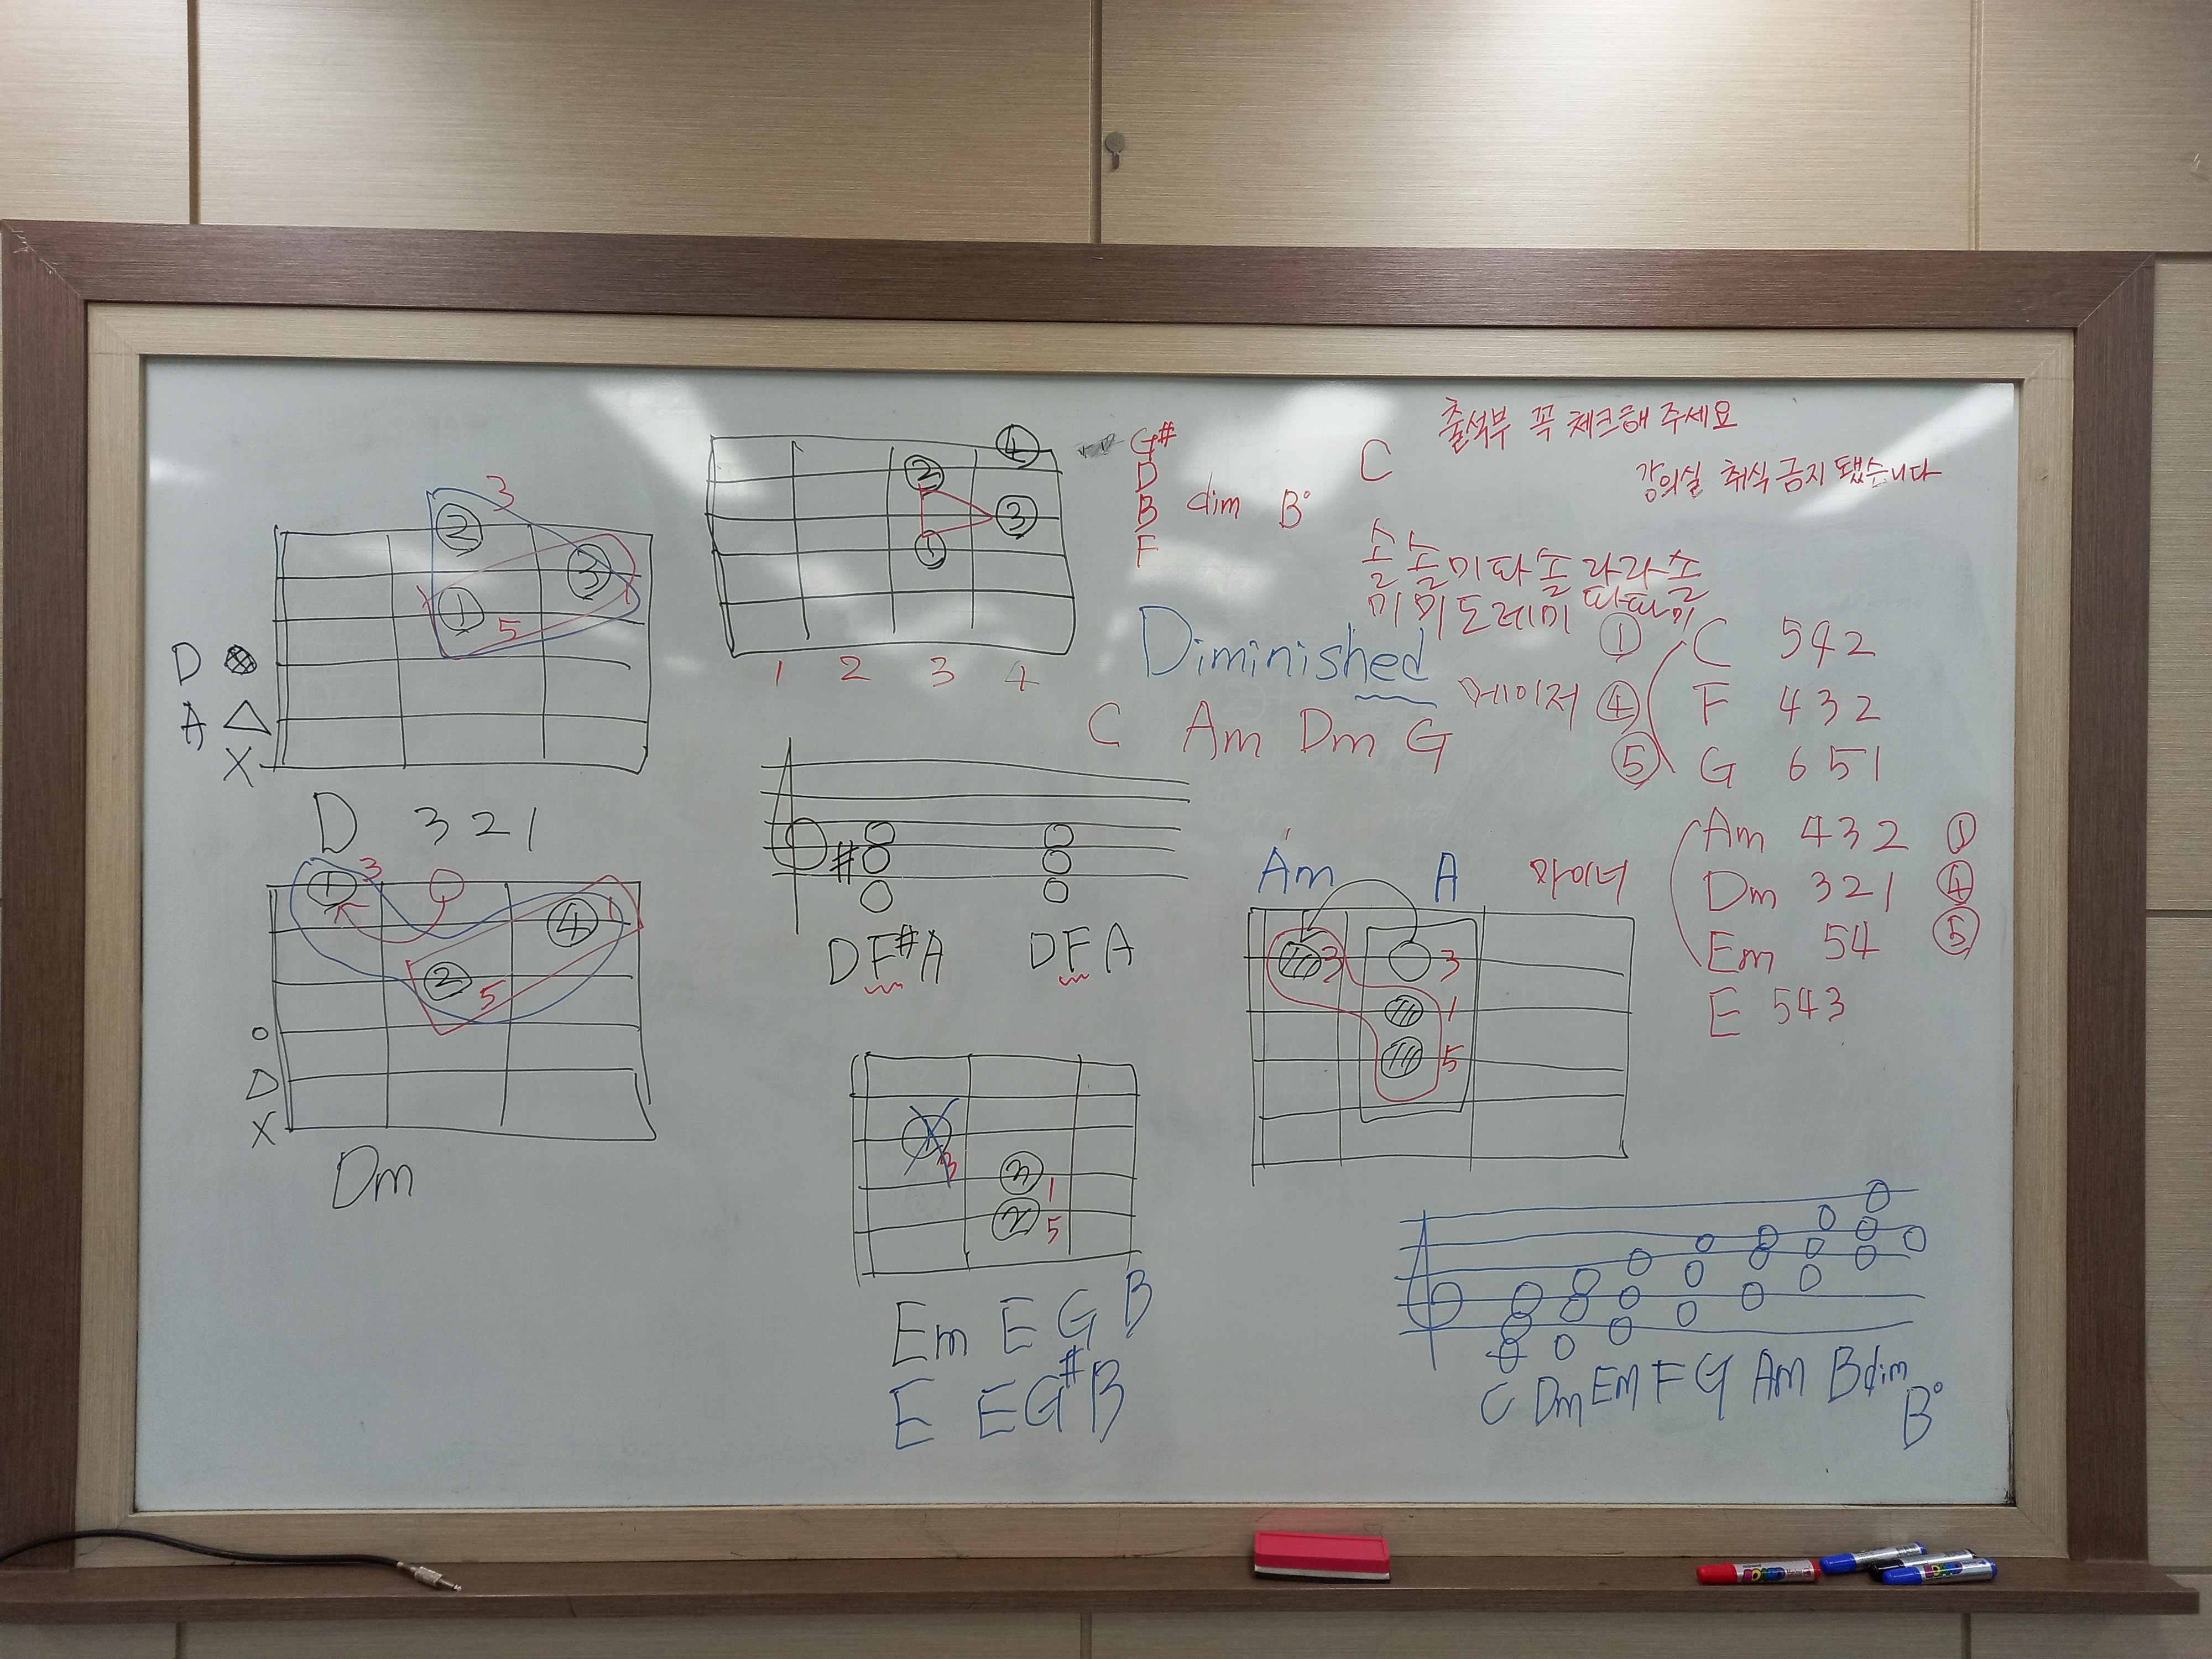 출석부 꼭 체크해 주세요
강의실 취식 금지 됐습니다
C
솔솔미파솔라라솔
미미도레미파파미
3
2
3
1
1
5
D
A △
X
D 3 2 1
2
4
3
1
1 2 3 4
G#
D
B dim B°
F
Diminished
C Am Dm G
메이저
① C 542
④ F 432
⑤ G 651
Am 432 ①
Dm 321 ④
Em 54 ⑤
E 543
1 3
4 1
2 5
X
Dm
#
D F# A D F A
Am A 마이너
3 3
1
5
1 3
3 1
2 5
Em E G B
E E G# B
C Dm Em F G Am Bdim
B°